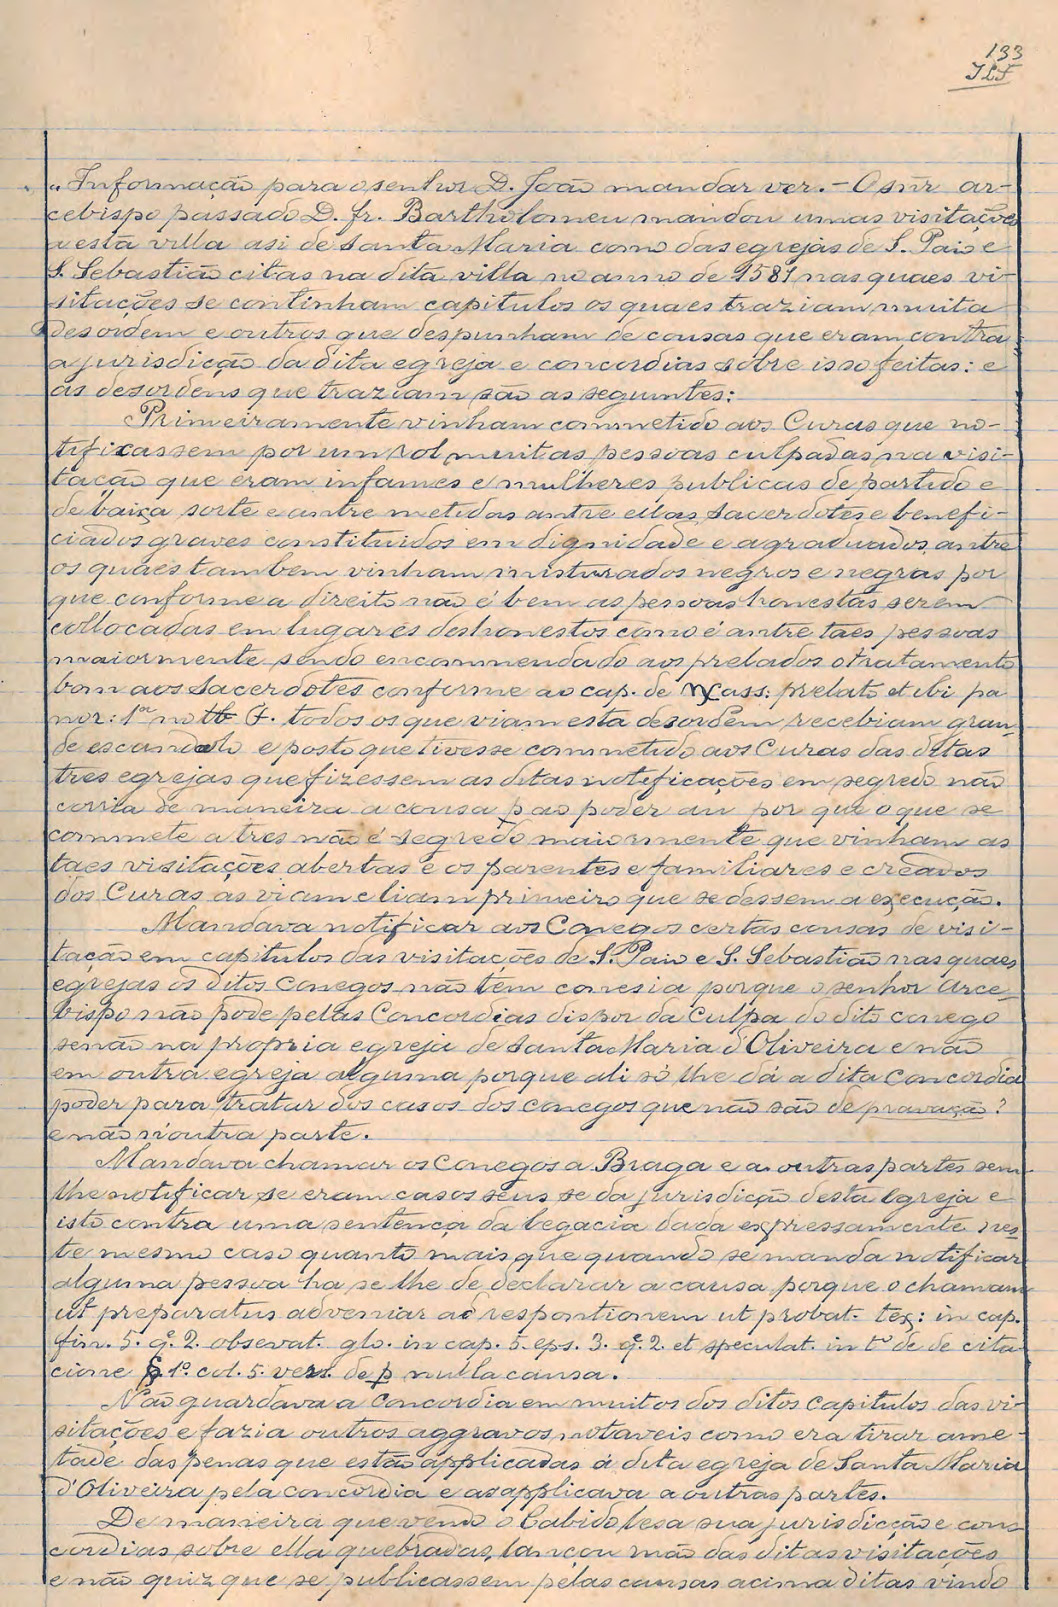 133
JLF
"Informação para o senhor D. João mandar ver. - O snr ar-
cebispo passado D. fr. Bartholomeu mandou umas visitações
a esta villa asi de Santa Maria como das egrejas de S. Paio e
S. Sebastião citas na dita villa no anno de 1581 nas quaes vi-
sitações se continham capitulos os quaes traziam muita
desordem e outros que despunham de cousas que eram contra
a jurisdição da dita egreja e concordias sobre isso feitas: e
as desordens que traziam são as seguintes:
Primeiramente vinham commetido aos Curas que no-
tificassem por um rol muitas pessoas culpadas na visi-
tação que eram infames e mulheres publicas de partido e
de baixa sorte e antre metidos antre ellas sacerdotes e benefi-
ciados graves constituidos em dignidade e agraduados antre
os quaes tambem vinham misturados negros e negras por
que conforme a direito não é bem as pessoas honestas serem
collocadas em lugares deshonestos como é antre taes pessoas
maiormente sendo encommendado aos prelados o tratamento
bom aos sacerdotes conforme ao cap. de xass: prelato et ibi pa
nor: 1º no tt F. todos os que viam esta desordem recebiam gran-
de escandalo e posto que tivesse commetido aos Curas das ditas
tres egrejas que fizessem as ditas notificações em segredo não
corria de maneira a cousa p ao poder au por que o que se
commete a tres não é segredo maiormente que vinham as
taes visitações abertas e os parentes e familiares e creados
dos Curas as viam e liam primeiro que se dessem a execução.
Mandava notificar aos Conegos certas cousas de visi-
tação em capitulos das visitações de S. Paio e S. Sebastião nas quaes
egrejas os ditos conegos não têm conesia porque o senhor Arce-
bispo não pode pelas Concordias dispor da culpa do dito conego
senão na propria egreja de Santa Maria d'Oliveira e não
em outra egreja alguma porque ali só lhe dá a dita Concordia
poder para tratar dos casos dos conegos que não são de pravação?
e não n'outra parte.
Mandava chamar os Conegos a Braga e a outras partes sem
lhe notificar se eram casos seus se da jurisdição desta egreja e
isto contra uma sentença da legacia dada expressamente nes-
te mesmo caso quanto mais que quando se manda notificar
alguma pessoa ha se lhe de declarar a causa porque o chamam
ut preparatus adveniar ad respontionem ut probat. tex: in cap.
fin. 5. q. 2. observat. glo. in cap. 5. eps. 3. q. 2. et speculat. in tº de de cita
cione § 1º col. 5. vers. de p nulla causa.
Não guardava a Concordia em muitos dos ditos capitulos das vi-
sitações e fazia outros aggravos notaveis como era tirar ame-
tade das penas que estão applicadas á dita egreja de Santa Maria
d'Oliveira pela concordia e as applicava a outras partes.
De maneira que vendo o Cabido lesa sua jurisdicção e con-
cordias sobre ella quebradas, lançou mão das ditas visitações
e não quiz que se publicassem pelas causas acima ditas vindo